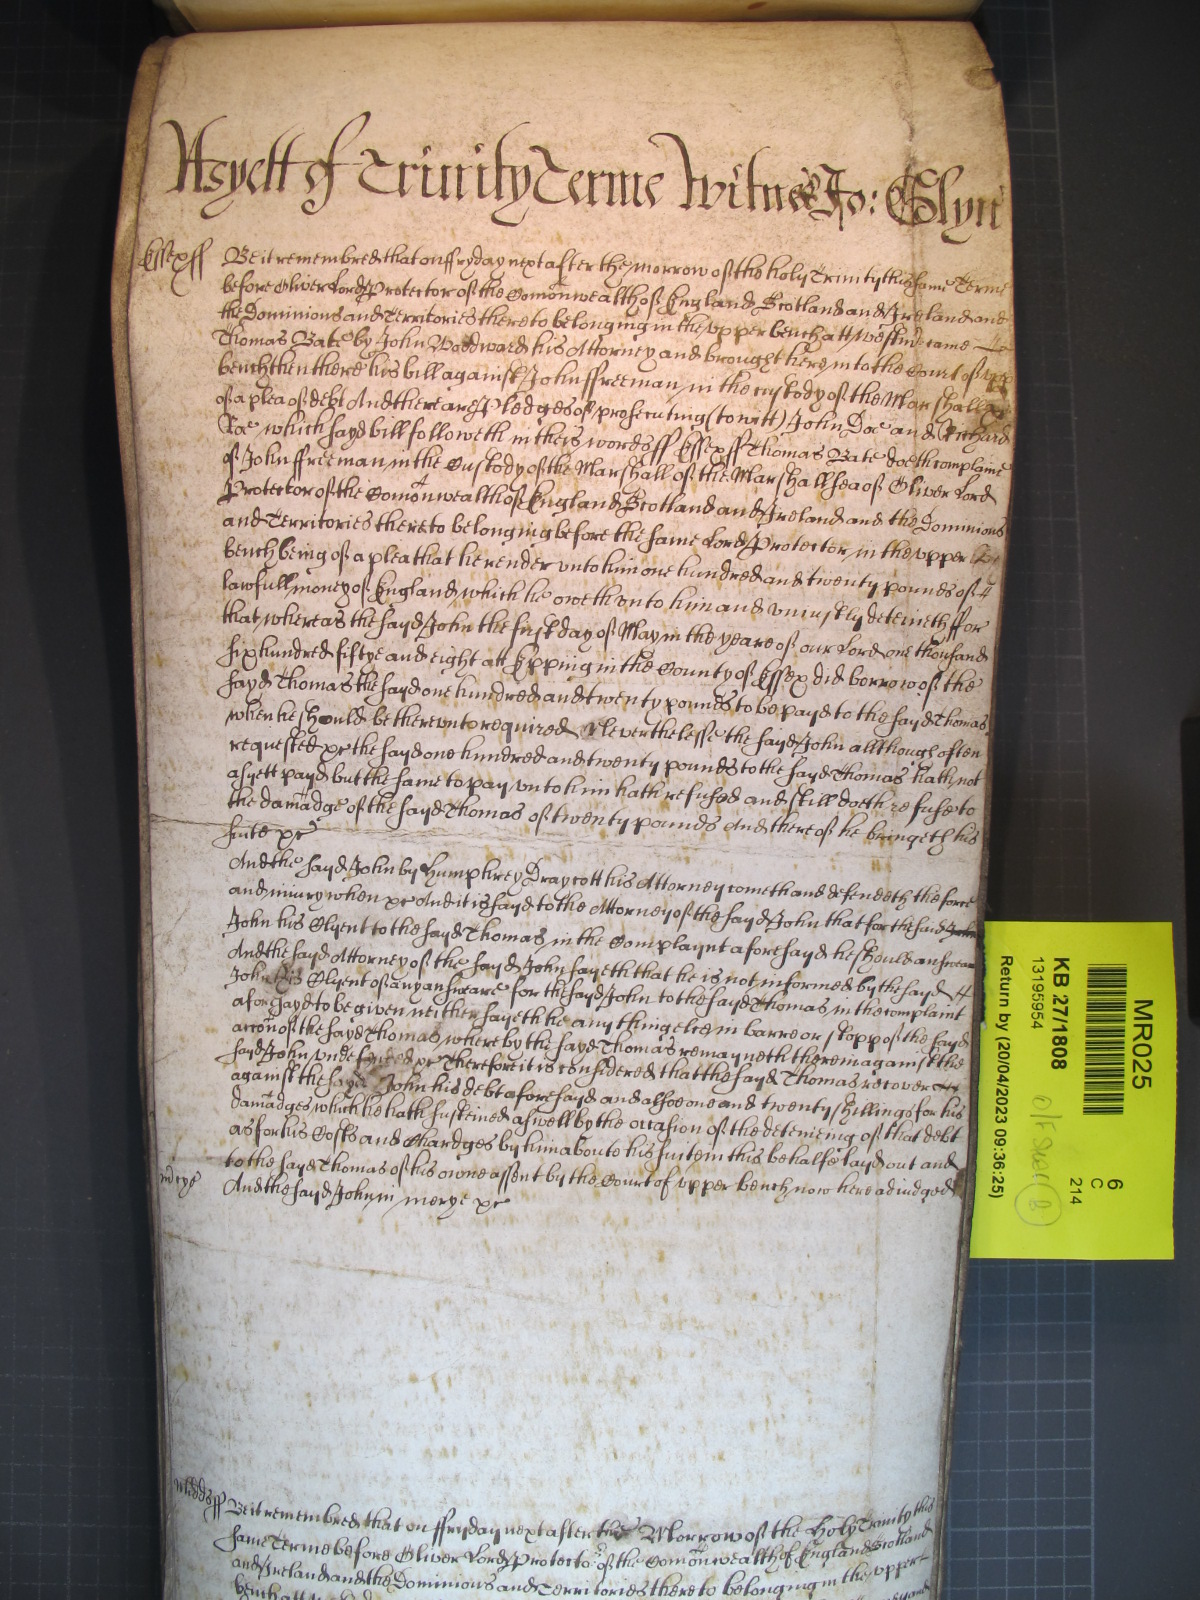 As yett of Trinity Terme Witnes Jo: Glyn
Essex ss Be it remembred that on ffryday next after the morrow of the holy Trinity this same Terme
before Oliver Lord Protector of the Comonwealth of England Scotland and Ireland and
the Dominions and Territories thereto belonging in the upper bench att Westm came
Thomas Bate by John Woodward his Attorney and brought here into the Court of upp
bench then there his bill against John ffreeman in the custody of the Marshall &c
of a plea of debt And there are Pledges of prosecuting (to witt) John Doe and Richard
Roe which sayd bill followeth in theis words ss Essex ss Thomas Bate doeth complaine
of John ffreeman in the Custody of the Marshall of the Marshallsea of Oliver Lord
Protector of the Comonwealth of England Scotland and Ireland and the Dominions
and Territories thereto belonging before the same Lord Protector in the upper
bench being of a plea that he render unto him one hundred and twenty pounds of
lawfull money of England which he oweth unto him and uniustly deteineth ffor
that whereas the sayd John the first day of May in the yeare of our Lord one thousand
six hundred fiftye and eight att Epping in the County of Essex did borrow of the
sayd Thomas the sayd one hundred and twenty pounds to be payd to the sayd Thomas
when he should be thereunto required Neverthelesse the sayd John allthough often
requested &c the sayd one hundred and twenty pounds to the sayd Thomas hath not
as yett payd but the same to pay unto him hath refused and still doeth refuse to
the damadge of the sayd Thomas of twenty pounds And thereof he bringeth his
suite &c
And the sayd John by Humphrey Draycott his Attorney cometh and defendeth the force
and iniury when &c And it is sayd to the Attorney of the sayd John that for the said John
John his Clyent to the sayd Thomas in the Complaynt aforesayd he should answeare
And the sayd Attorney of the sayd John sayeth that he is not informed by the sayd
John his Clyent of any answeare for the sayd John to the sayd Thomas in the complaint
aforesayd to be given neither sayeth he any thing else in barre or stopp of the sayd
accon of the sayd Thomas whereby the sayd Thomas remayneth therein against the
sayd John undefended &c Therefore it is considered that the sayd Thomas recover
against the sayd John his debt aforesayd and alsoe one and twenty shillings for his
damadges which he hath susteined as well by the occasion of the deteineing of that debt
as for his Costs and Chardges by him about his suite in this behalfe layd out and
to the sayd Thomas of his owne assent by the Court of upper bench now here adiudged
mcye And the sayd John in mercye &c
Midds ss Be it remembred that on ffryday next after the Morrow of the Holy Trinity this
same Terme before Oliver Lord Protector of the Comonwealth of England Scotland
and Ireland and the Dominions and Territories thereto belonging in the upper
bench att
MR025
6
C
214
KB 27/1808
13195954
Return by (20/04/2023 09:36:25)